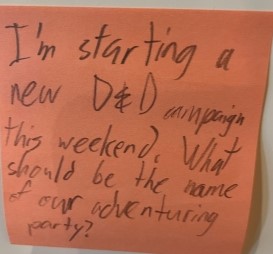 I'm starting a
new D&D campaign
this weekend. What
should be the name
of our adventuring
party?